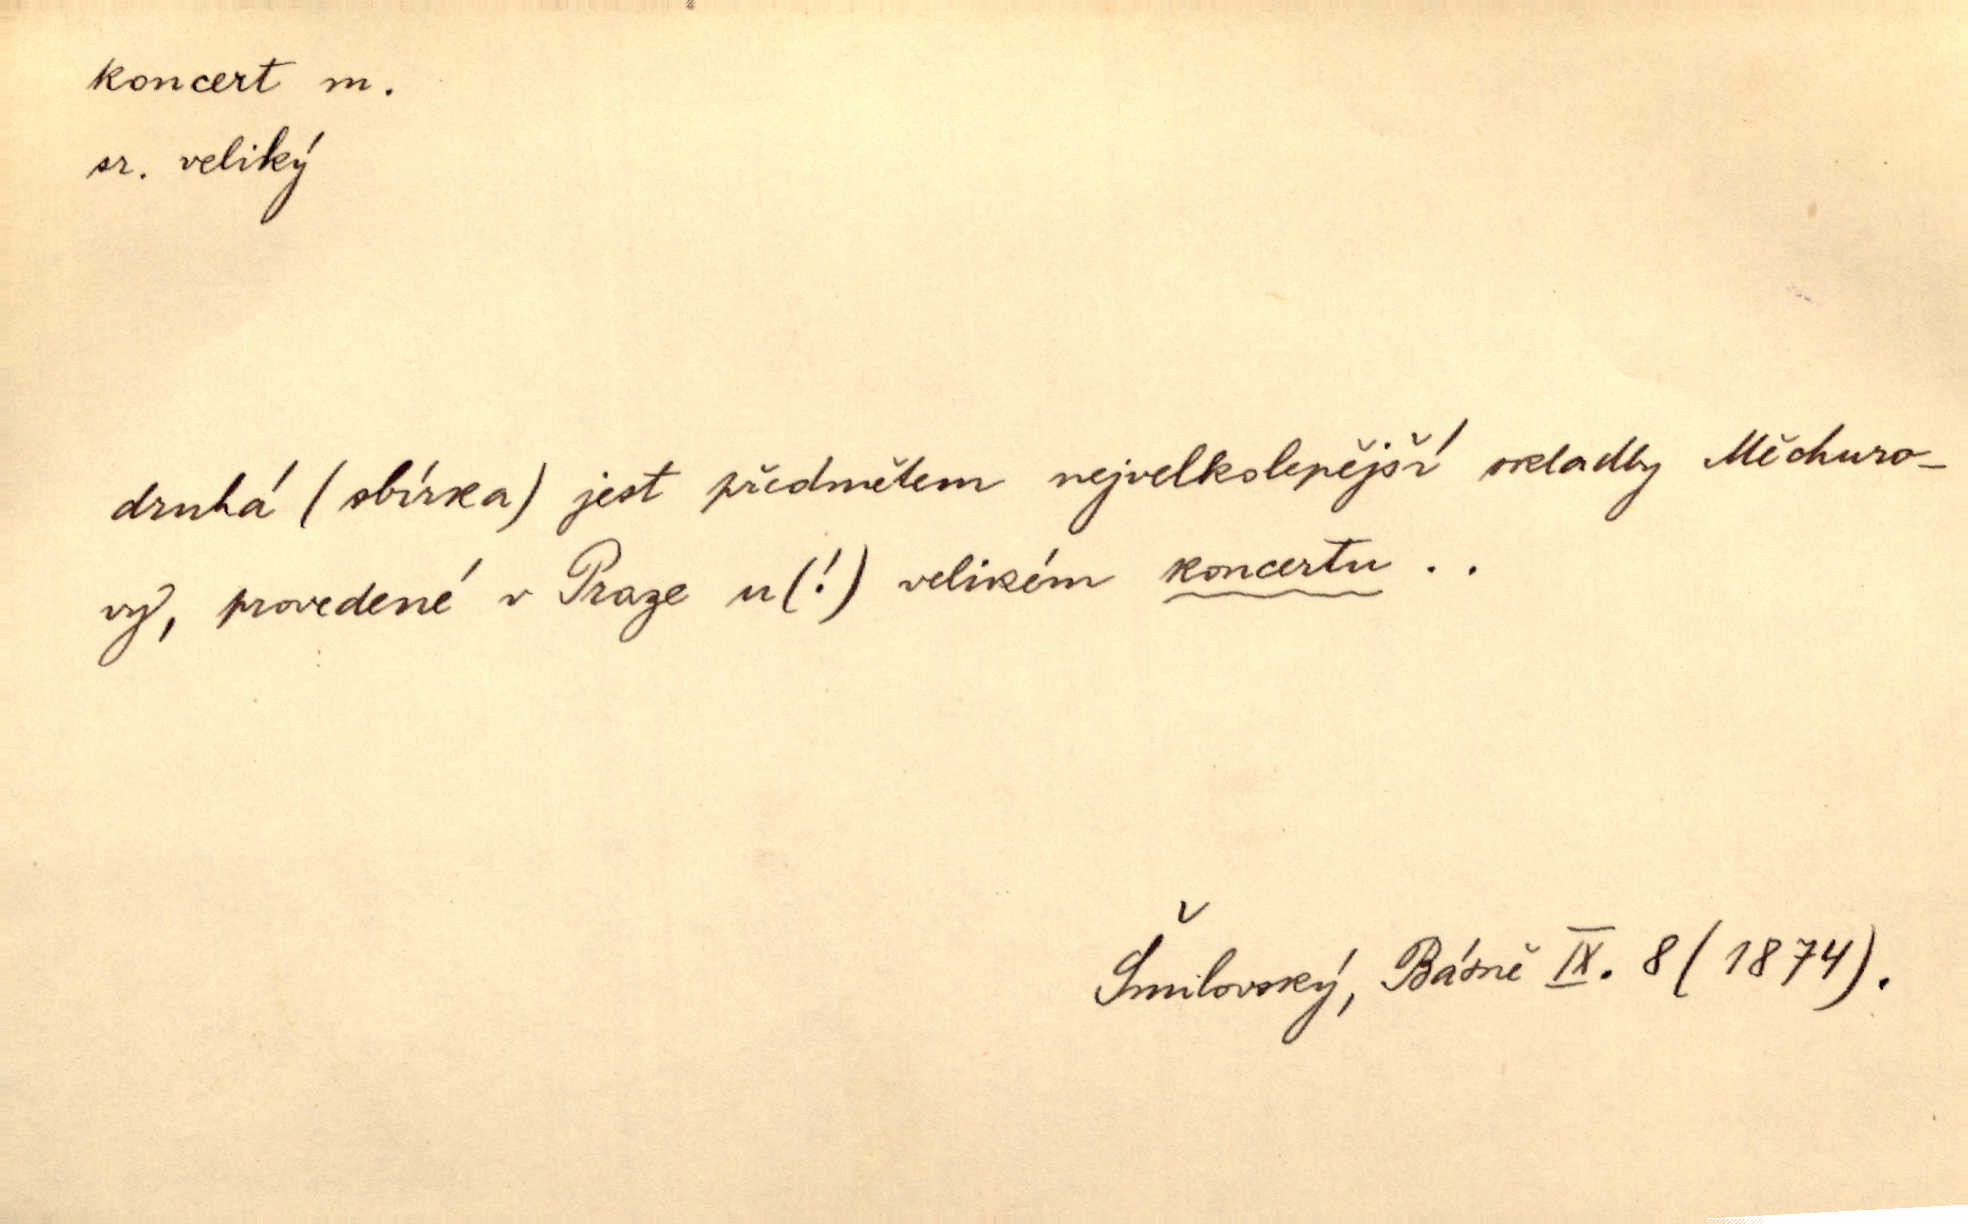 koncert m.
sr. veliký
druhá (sbírka) jest předmětem nejvelkolepější skladby Měchuro-
vy, provedené v Praze u(!) velikém koncertu . .
Šmilovský, Básně IX. 8 (1874).